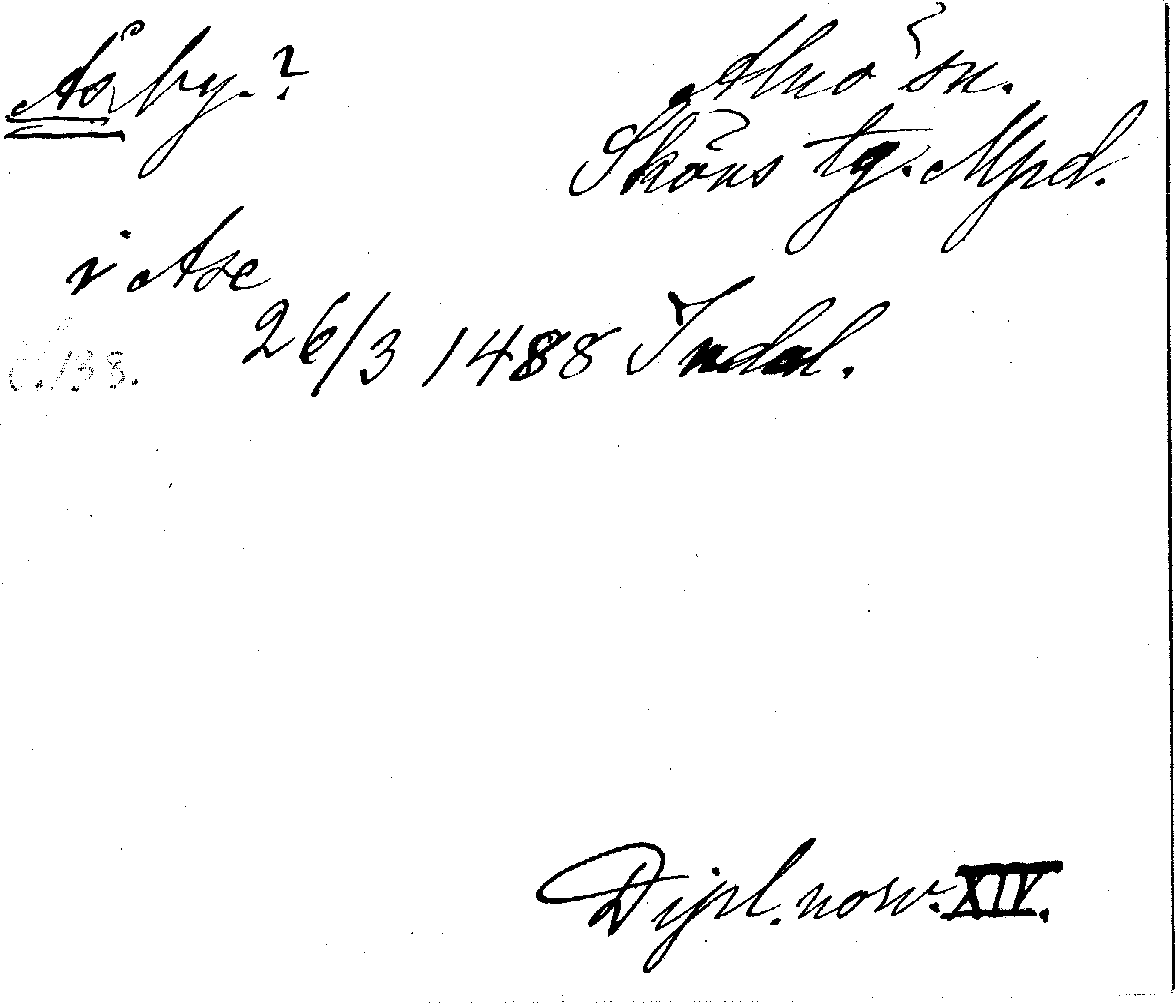 Ås by.?
Alnö sn.
Sköns tg. Mpd.
i Ase
26/3 1488 Indal.
s. 138.
Dipl. norv. XIV.